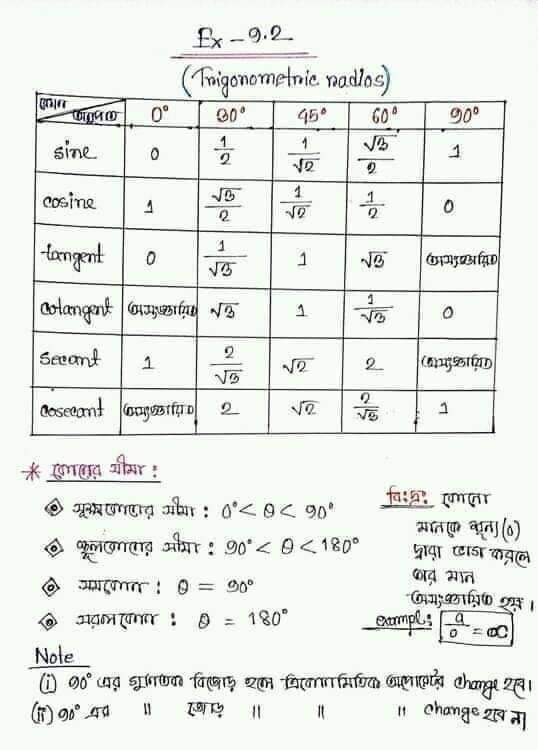 Ex - 9.2
(Trigonometric radios)
কোন অনুপাত 0° 30° 45° 60° 90°
sine 0 1/2 1/√2 √3/2 1
cosine 1 √3/2 1/√2 1/2 0
tangent 0 1/√3 1 √3 অসংজ্ঞায়িত
cotangent অসংজ্ঞায়িত √3 1 1/√3 0
secant 1 2/√3 √2 2 অসংজ্ঞায়িত
cosecant অসংজ্ঞায়িত 2 √2 2/√3 1
* কোণের সীমা :
সূক্ষ্মকোণের সীমা : 0° < θ < 90°
স্থূলকোণের সীমা : 90° < θ < 180°
সমকোণ : θ = 90°
সরলকোণ : θ = 180°
বি:দ্র: কোনো
মানকে শূন্য (0)
দ্বারা ভাগ করলে
তার মান
অসংজ্ঞায়িত হয়।
exampl: a/0 = ∞
Note
(i) 90° এর গুণিতক বিজোড় হলে ত্রিকোণমিতিক অপারেটর change হবে।
(ii) 90° এর " জোড় " " " change হবে না